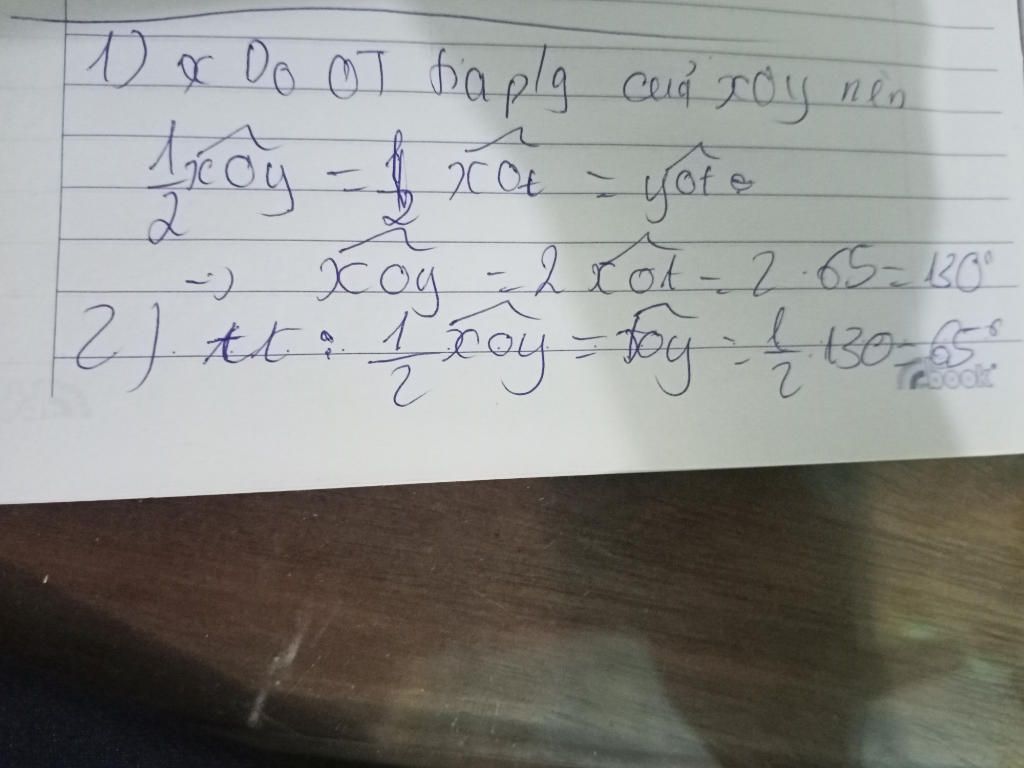 1) x Do OT tia p/g của xOy nên
1/2 xOy = 1/2 xOt = yOt
=> xOy = 2 xOt = 2 . 65 = 130°
2) tt : 1/2 xOy = tOy = 1/2 . 130 = 65°
book